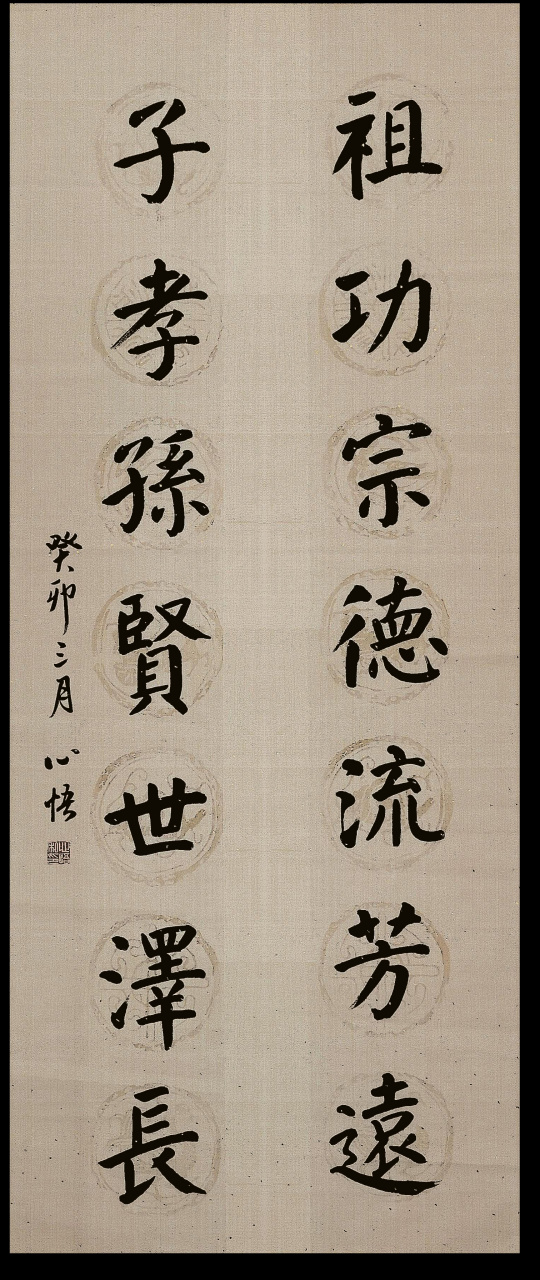 祖功宗德流芳遠
子孝孫賢世澤長
癸卯三月 心悟